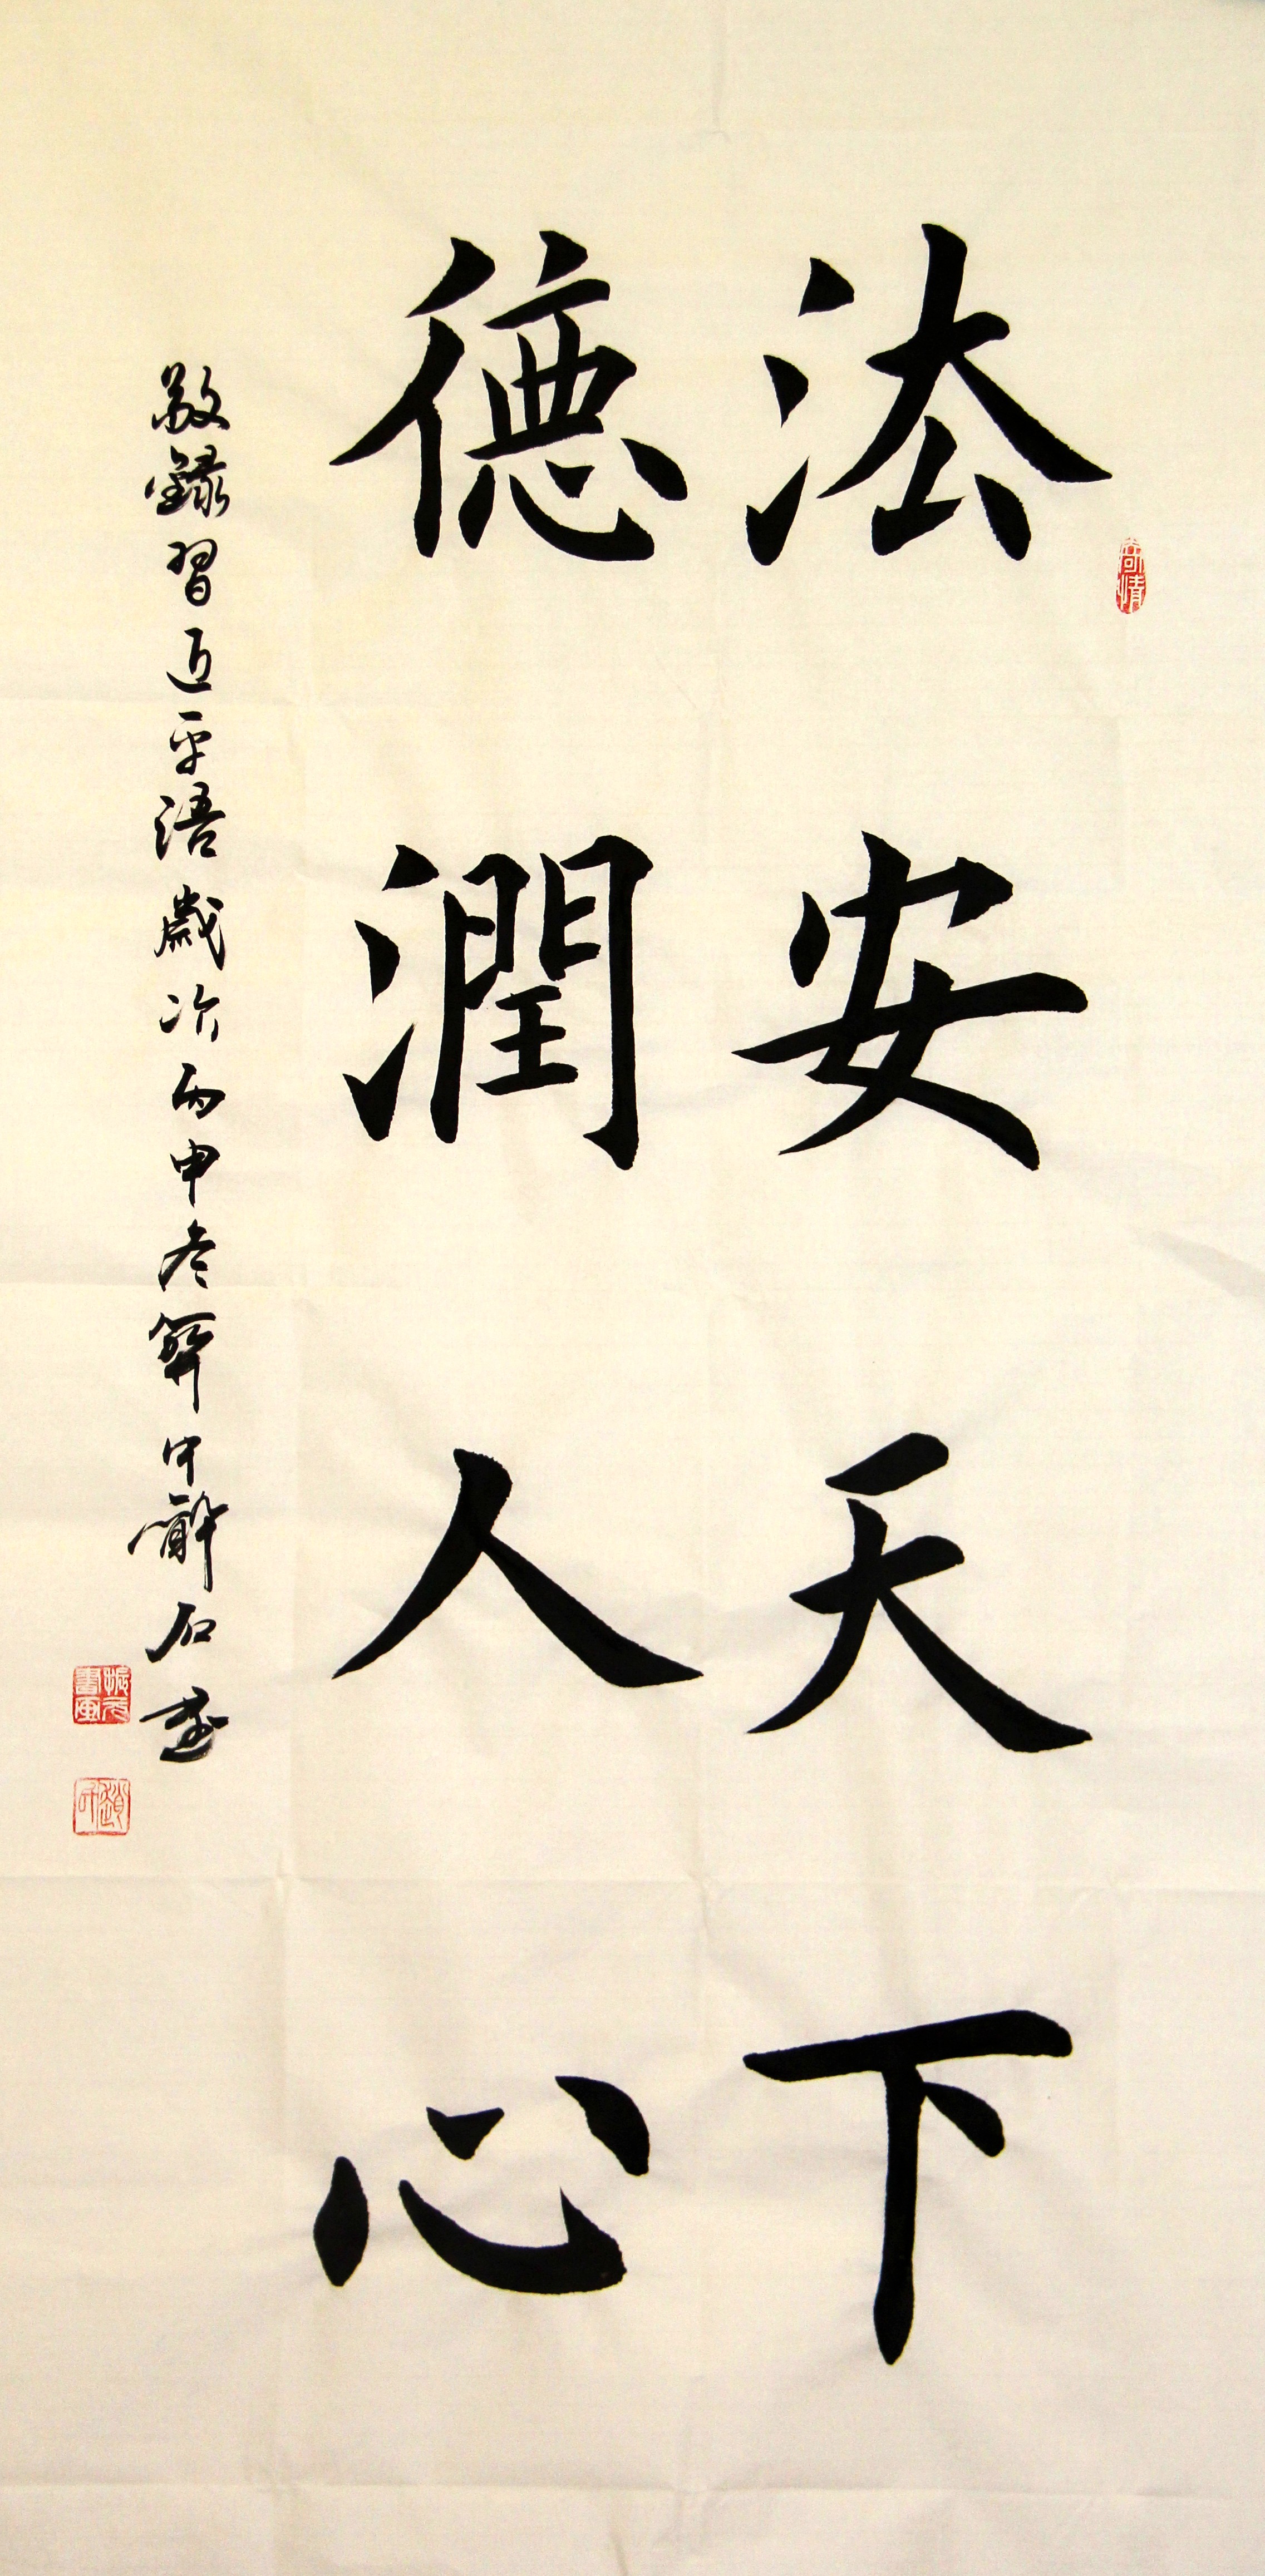 法安天下
德潤人心
敬録習近平語歲次丙申冬翠中醉石書